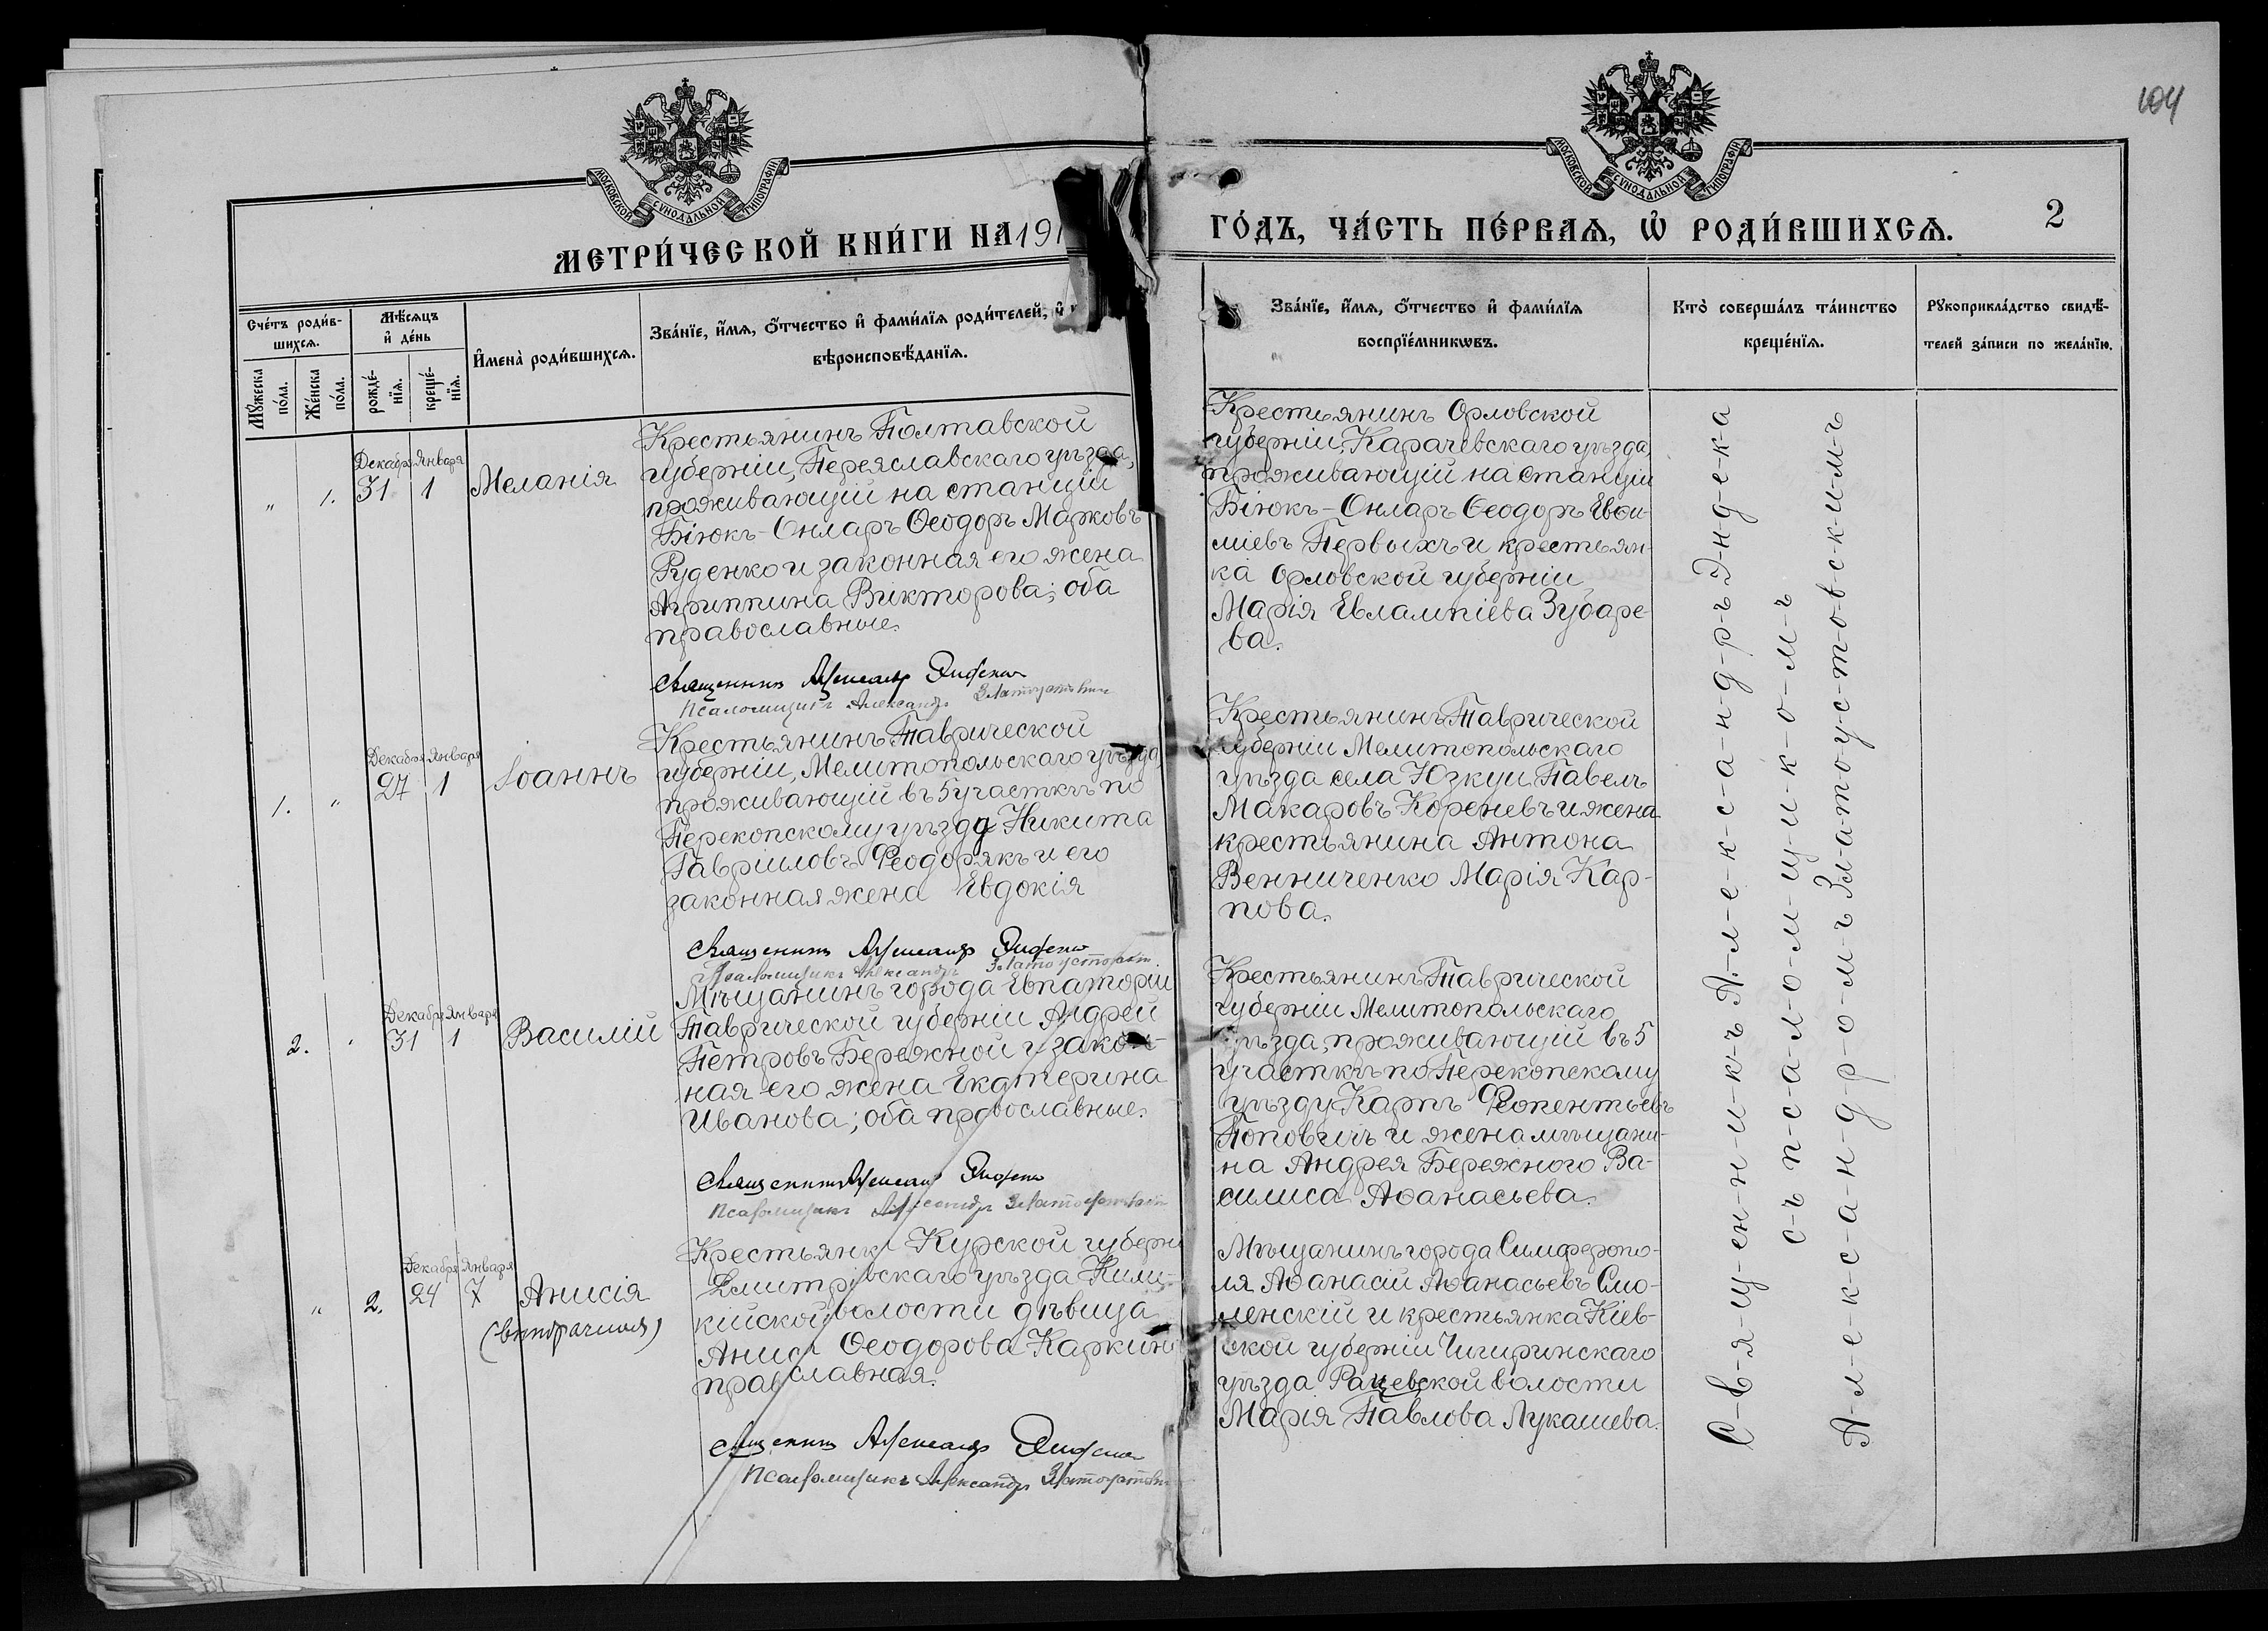 104
МОСКОВСКОЙ СУНОДАЛЬНОЙ ТИПОГРАФІИ
МОСКОВСКОЙ СУНОДАЛЬНОЙ ТИПОГРАФІИ
МЕТРИ́ЧЕСКОЙ КНИ́ГИ НА 191
ГО́ДЪ, ЧА́СТЬ ПЕ́РВАѦ, Ѡ҆ РОДИ́ВШИХСѦ.
2
Сче́тъ роди́в-
шихсѧ.
Мꙋ́жеска
по́ла.
Же́нска
по́ла.
Мѣ́сѧцъ
и҆ де́нь
рожде́-
нїѧ.
креще́-
нїѧ.
И҆мена̀ роди́вшихсѧ.
Зва́нїе, и҆́мѧ, ѻ҆́тчество и҆ фами́лїѧ роди́телей, и҆
вѣроисповѣ́данїѧ.
Зва́нїе, и҆́мѧ, ѻ҆́тчество и҆ фами́лїѧ
воспрїе́мникѡвъ.
Кто̀ соверша́лъ та́инство
креще́нїѧ.
Рꙋкоприкла́дство свидѣ́-
телей за́писи по жела́нїю.
" 1. Декабря 31 Января 1 Меланія
Крестьянинъ Полтавской
губерніи, Переяславскаго уѣзда,
проживающій на станціи
Біюкъ-Онларъ Ѳеодоръ Марковъ
Руденко и законная его жена
Агриппина Викторова; оба
православные.
Священникъ Александр
Псаломщикъ Александръ Златоустовскій
Крестьянинъ Орловской
губерніи, Карачевскаго уѣзда,
проживающій на станціи
Біюкъ-Онларъ Ѳеодоръ Евѳи-
міевъ Первыхъ и крестьян-
ка Орловской губерніи
Марія Евлампіева Зубаре-
ва.
1. " Декабря 27 Января 1 Іоаннъ
Крестьянинъ Таврической
губерніи, Мелитопольскаго уѣзда,
проживающій въ 5 участкѣ по
Перекопскому уѣзду Никита
Гавріиловъ Феодорякъ и его
законная жена Евдокія
Священникъ Александръ
Псаломщикъ Александръ Златоустовскій
Крестьянинъ Таврической
губерніи Мелитопольскаго
уѣзда села Юзкуи Павелъ
Макаровъ Кореневъ и жена
крестьянина Антона
Венниченко Марія Кар-
пова.
2. " Декабря 31 Января 1 Василій
Мѣщанинъ города Евпаторіи
Таврической губерніи Андрей
Петровъ Бережной и закон-
ная его жена Екатерина
Иванова; оба православные.
Священникъ Александръ
Псаломщикъ Александръ Златоустовскій
Крестьянинъ Таврической
губерніи Мелитопольскаго
уѣзда, проживающій въ 5
участкѣ по Перекопскому
уѣзду Карпъ
Поповичъ и жена мѣщани-
на Андрея Бережного Ва-
силиса Аѳанасьева.
" 2. Декабря 24 Января 7 Анисія
(внѣбрачная)
Крестьянка Курской губерн
Дмитріевскаго уѣзда
волости дѣвица
Ѳеодорова Каркин
православная.
Священникъ Александръ
Псаломщикъ Александръ Златоустовскій
Мѣщанинъ города Симферопо-
ля Аѳанасій Аѳанасьевъ Смо-
ленскій и крестьянка Кіев-
ской губерніи Чигиринскаго
уѣзда Рацевской волости
Марія Павлова Лукашева.
С-в-я-щ-ен-н-и-к-ъ А-л-е-к-с-а-н-д-р-ъ Э-н-д-е-к-а
с-ъ п-с-а-л-о-м-щ-и-к-о-м-ъ
А-л-е-к-с-а-н-д-р-о-м-ъ Зл-а-т-о-у-с-т-о-в-с-к-и-м-ъ